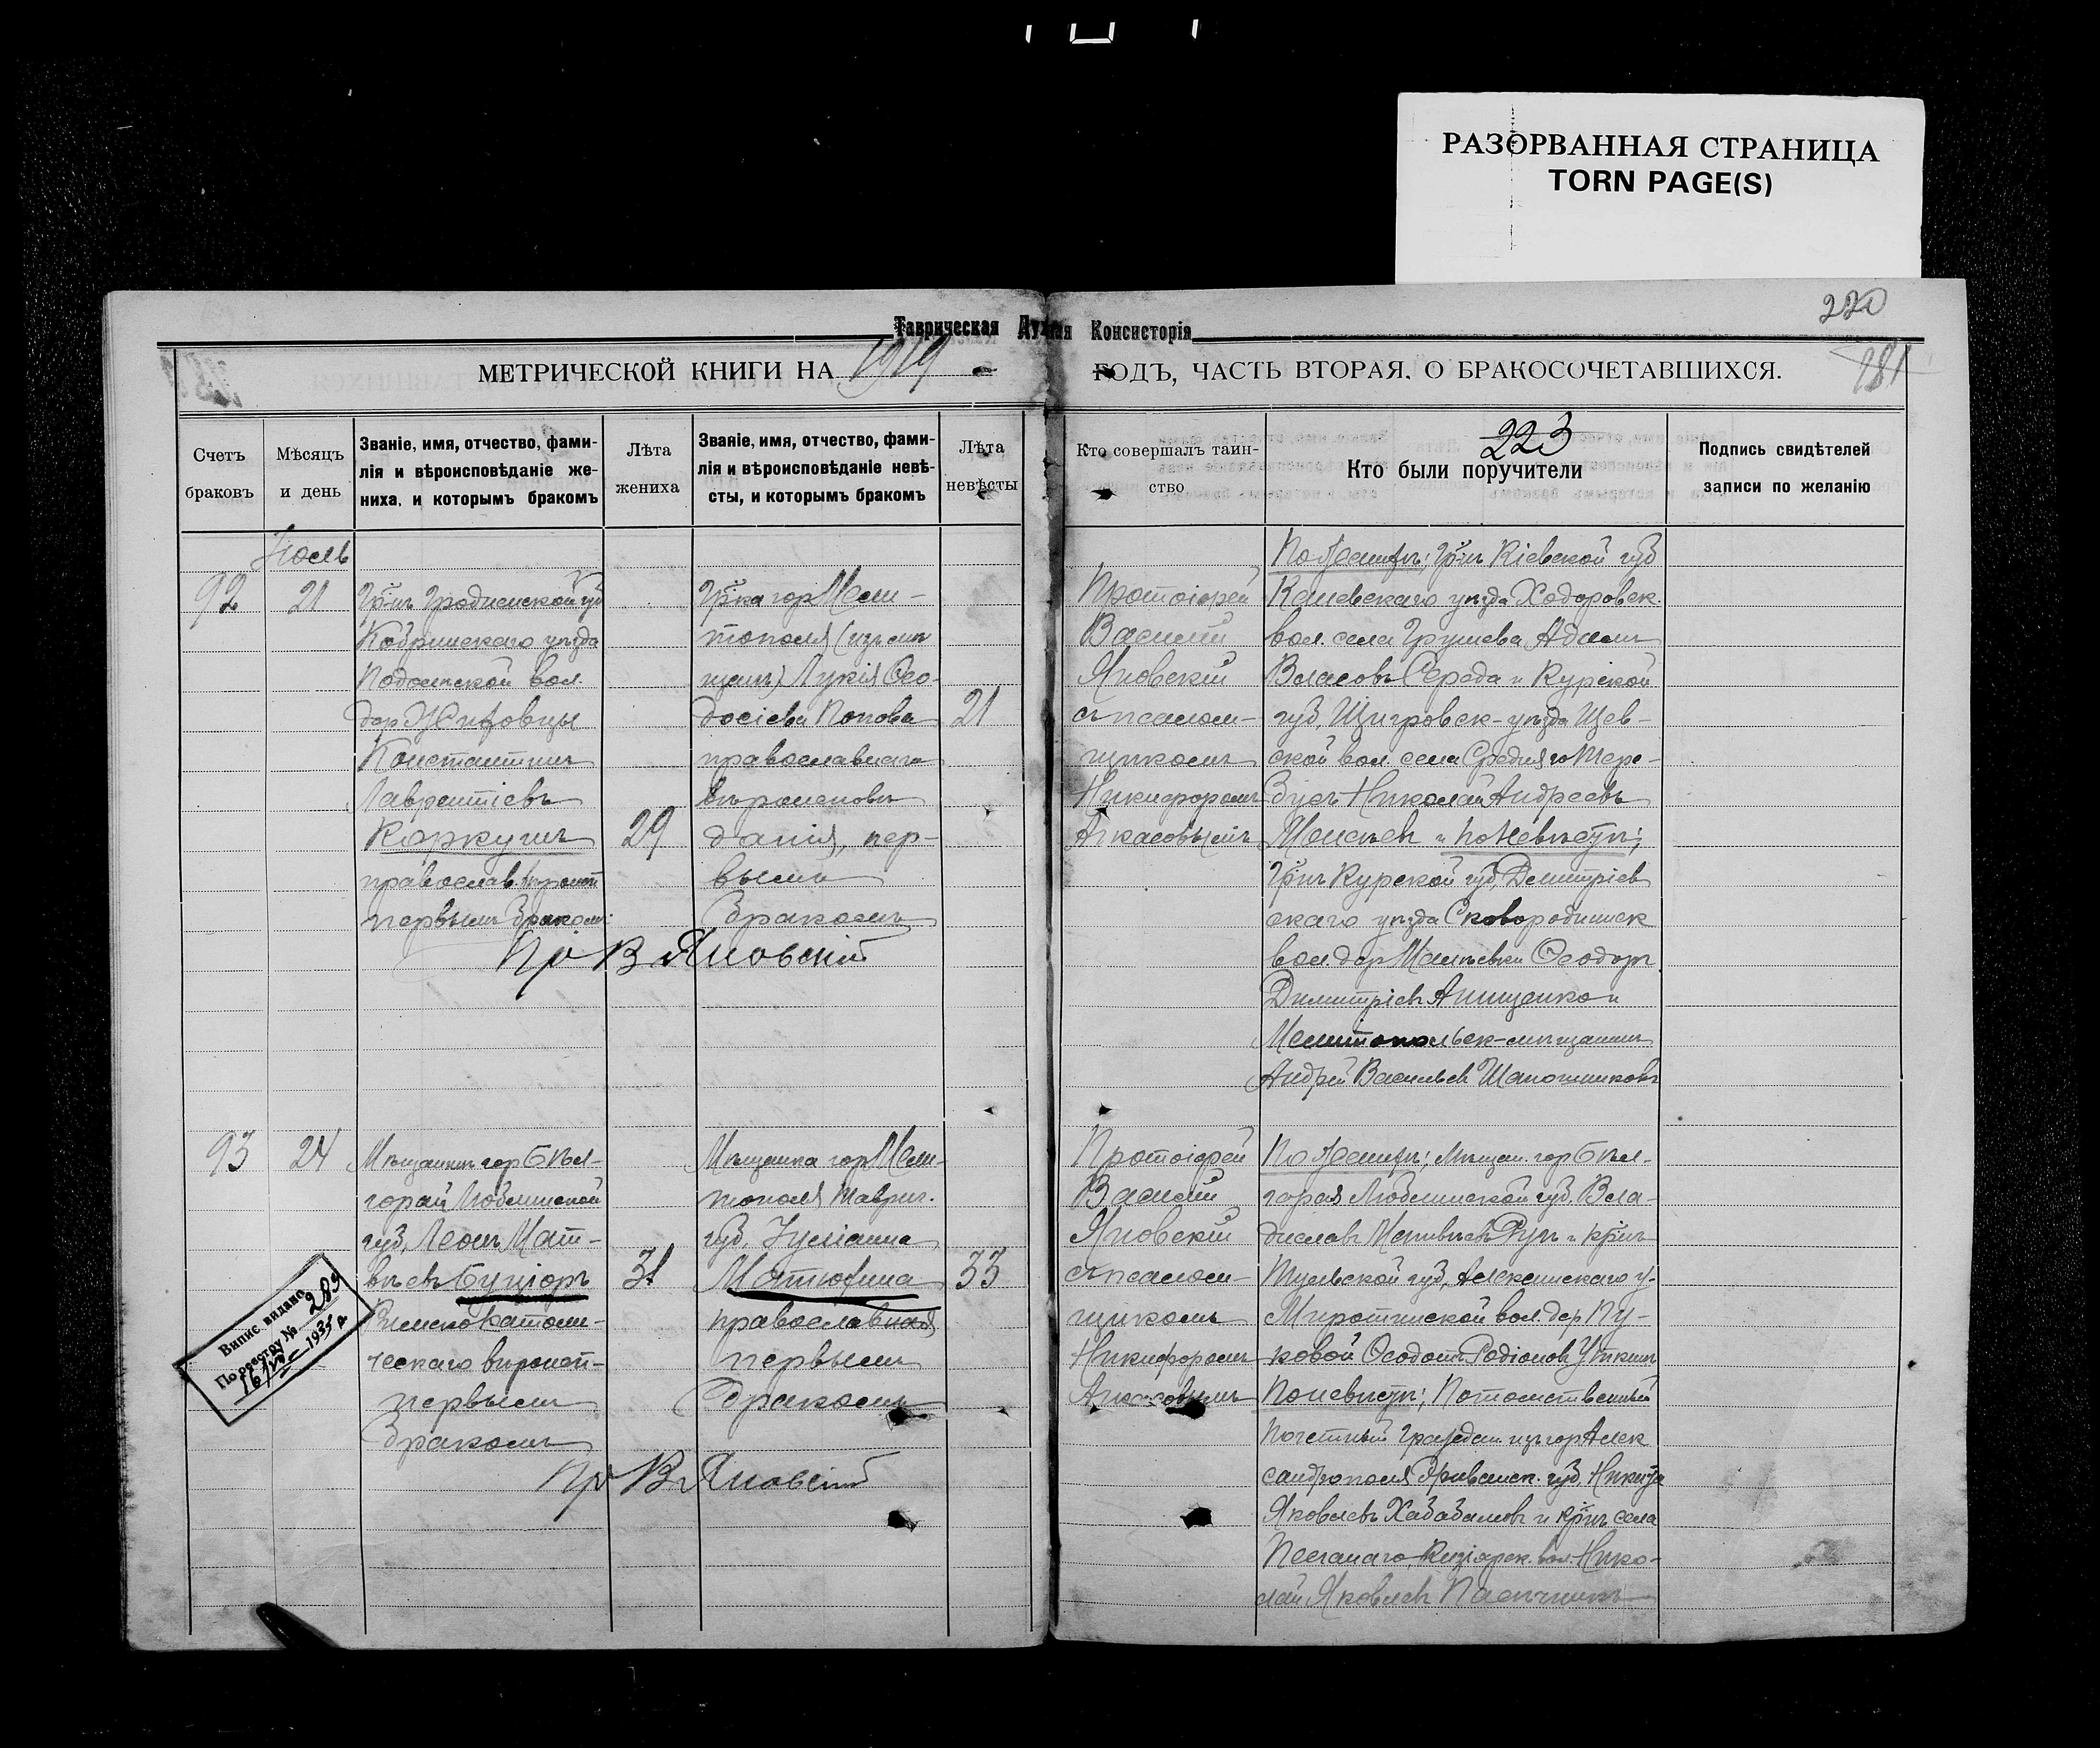 РАЗОРВАННАЯ СТРАНИЦА
TORN PAGE(S)
220
Таврическая Духная Консисторія
МЕТРИЧЕСКОЙ КНИГИ НА 1919 ГОДЪ, ЧАСТЬ ВТОРАЯ, О БРАКОСОЧЕТАВШИХСЯ.
181
Счетъ браковъ
Мѣсяцъ и день
Званіе, имя, отчество, фами-
лія и вѣроисповѣданіе же-
ниха, и которымъ бракомъ
Лѣта жениха
Званіе, имя, отчество, фами-
лія и вѣроисповѣданіе невѣ-
сты, и которымъ бракомъ
Лѣта невѣсты
Кто совершалъ таин-
ство
223
Кто были поручители
Подпись свидѣтелей
записи по желанію
Іюль
92
21
Гр-нъ Гродненской губ
Кобринскаго уѣзда
вол.
дер
Константинъ
Лаврентіевъ
Коркунъ
православ.
первымъ бракомъ
29
Гр-ка гор Мели-
тополя (изъ мѣ
щанъ) Лукія Ѳео-
досіева Попова
православнаго
вѣроисповѣ
данія, пер-
вымъ
бракомъ
21
Протоіерей
Василій
Яновскій
съ псалом-
щикомъ
Никифоромъ
По Жениху; Гр-нъ Кіевской губ
Каневскаго уѣзда Ходоровск.
вол. села Грушева Адамъ
Власовъ Середа и Курской
губ, Щигровск-уѣзда
ской вол. села
Николай Андреевъ
и по Невѣстѣ;
Гр-нъ Курской губ, Дмитріев
скаго уѣзда
вол. дер Ѳеодоръ
Димитріев Анищенко и
Мелитопольск-мѣщанинъ
Андрей Васильев Шапошниковъ
Пр В Яновскій
93
24
Мѣщанинъ гор Бѣл-
горай Люблинской
губ, Леонъ Мат-
вѣевъ Буціоръ
Римскокатоли-
ческаго вѣроисп-
первымъ
бракомъ
31
Мѣщанка гор Мели-
тополя Таврич.
губ, Іуліанна
Матюхина
православная
первымъ
бракомъ
33
Протоіерей
Василій
Яновскій
съ псалом-
щикомъ
Никифоромъ
По Жениху; Мѣщан. гор Бѣл-
горая Люблинской губ, Вла-
диславъ и кр-нъ
Тульской губ, Алексинскаго у-
вол. дер Пу-
ковой Ѳеодотъ Родіоновъ Уткинъ
По невѣстѣ; Потомственный
Почетный Гражданинъ гор Алек
сандрополя Эриванск. губ, Никита
Яковлевъ и кр-нъ села
Песчанаго, вол. Нико-
лай Яковлев
Пр В Яновскій
Випис видано
По реєстру № 289
16/VII-1935 р.